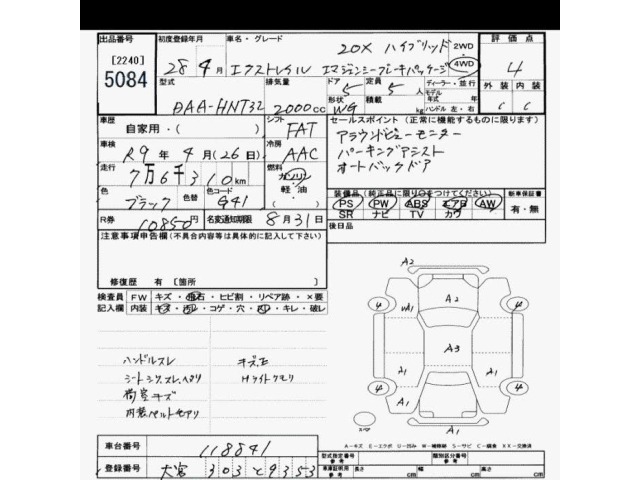 出品番号 初度登録年月 車名・グレード 評価点
[2240] 5084
28年4月 エクストレイル 20X ハイブリッド エマージェンシーブレーキパッケージ 2WD 4WD 4
型式 排気量 ドア 定員 ディーラー・並行 外装 内装
DAA-HNT32 2000cc 5 5人 モデル年式 年
形状 WG 積載 kg ハンドル 左・右 C C
車歴 シフト セールスポイント (正常に機能するものに限ります)
自家用・( ) FAT アラウンドビューモニター
車検 冷房 パーキングアシスト
R9年4月(26日) AAC オートバックドア
走行 燃料
7万6千310km ガソリン 軽油
色 色替 色コード 装備品 (純正品に限り○をつけてください) 新車保証書
ブラック G41 PS PW ABS エアB AW 有・無
SR ナビ TV カワ
R券 10850円 名変通知期限 8月31日 後日品
注意事項申告欄(不具合内容等は具体的に記入して下さい)
修復歴 有 [箇所 ]
検査員 FW キズ・飛石・ヒビ割・リペア跡・×要
記入欄 内装 キズ・汚レ・コゲ・穴・スレ・キレ・破レ
ハンドルスレ キズ王
シートシワ,スレ,ヘタリ Hライトクモリ
荷室キズ
内装ベルトモアリ
A2
4 A2 4
UA1
A3
A1 A1
4 4
A1
スペア A1
A-キズ E-エクボ U-凹み W-補修跡 S-サビ C-腐食 XX-交換済
車台番号 118841 型式指定番号 参考 類別区分番号 参考
登録番号 大宮 303 と 9353 車車証明用 参考 長さ cm 幅 cm 高さ cm